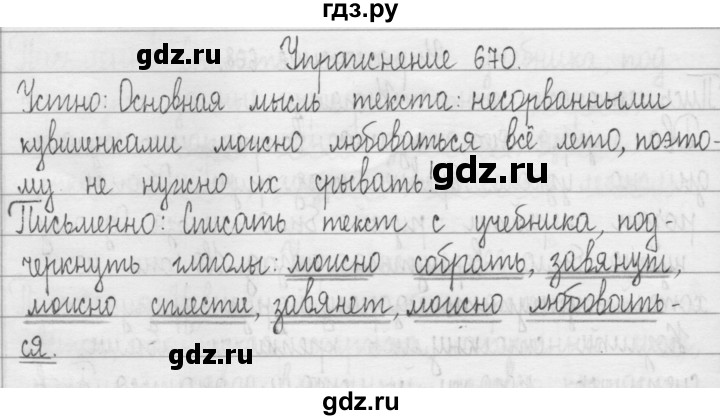 гдз.ру
Упражнение 670.
gdz.ru gdz.ru
Устно: Основная мысль текста: несорванными
кувшинками можно любоваться всё лето, поэто-
му не нужно их срывать!
gdz.ru gdz.ru
Письменно: Списать текст с учебника, под-
черкнуть глаголы: можно собрать, завянут,
можно сплести, завянет, можно любовать
ся.
gdz.ru gdz.ru